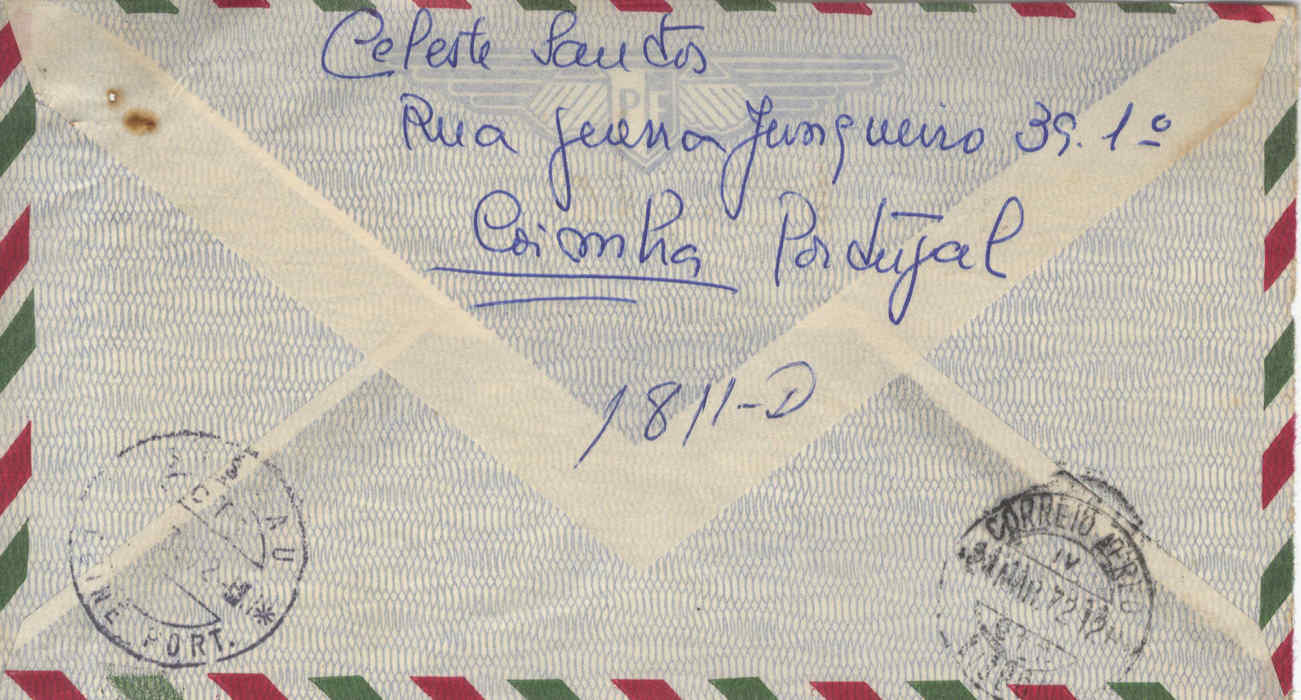 Celeste Santos
Rua Guerra Junqueiro 39. 1º
Coimbra Portugal
1811-D
BISSAU
GUINÉ PORT. *
CORREIO AÉREO
IV
MAR. 72